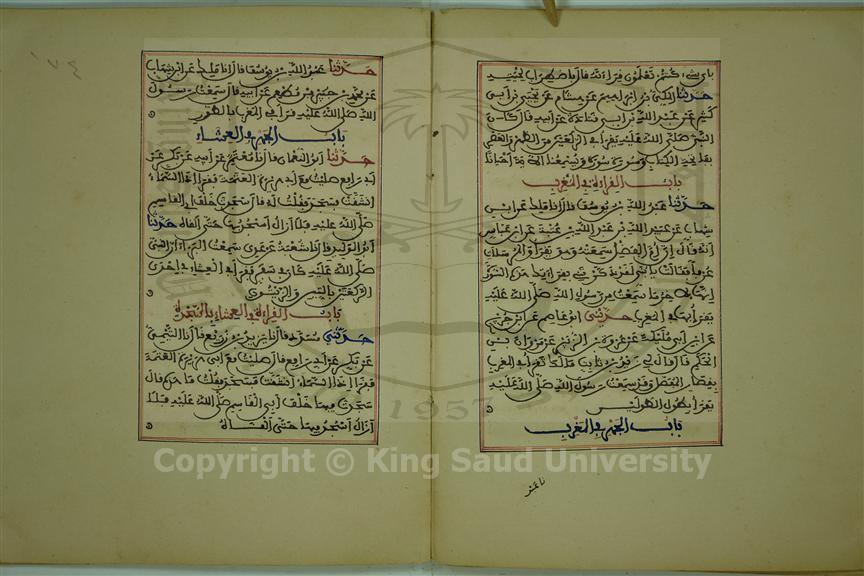 بأي شيء كنتم تعلمون قراءته قال باضطراب لحيته
حدثنا المكي بن إبراهيم عن هشام عن يحيى بن أبي
كثير عن عبد الله بن أبي قتادة عن أبيه قال كان
النبي صلى الله عليه يقرأ في الركعتين من الظهر والعصر
بفاتحة الكتاب وسورة سورة ويسمعنا الآية أحيانا
باب القراءة في المغرب
حدثنا عبد الله بن يوسف قال أنا ملك عن ابن
شهاب عن عبيد الله بن عبد الله بن عتبة عن ابن عباس
أنه قال إن أم الفضل سمعته وهو يقرأ والمرسلات
عرفا فقالت يا بني لقد ذكرتني بقراءتك هذه السورة
إنها لآخر ما سمعت من رسول الله صلى الله عليه
يقرأ بها في المغرب حدثني أبو عاصم عن ابن جريج
عن ابن أبي مليكة عن عروة بن الزبير عن مروان بن
الحكم قال قال لي زيد بن ثابت ما لك تقرأ في المغرب
بقصار المفصل وقد سمعت رسول الله صلى الله عليه
يقرأ بطول الطوليين
باب الجهر في المغرب
نا عبد
حدثنا عبد الله بن يوسف قال أنا ملك عن ابن شهاب
عن محمد بن جبير بن مطعم عن أبيه قال سمعت رسول
الله صلى الله عليه قرأ في المغرب بالطور
باب الجهر في العشاء
حدثنا أبو النعمان قال نا معتمر عن أبيه عن بكر عن
أبي رافع صليت مع أبي هريرة العتمة فقرأ إذا السماء
انشقت فسجد فقلت له قال سجدت خلف أبي القاسم
صلى الله عليه فلا أزال أسجد بها حتى ألقاه حدثنا
أبو الوليد قال نا شعبة عن عدي سمعت البراء أن النبي
صلى الله عليه كان في سفر فقرأ في العشاء في إحدى
الركعتين بالتين والزيتون
باب القراءة في العشاء بالسجدة
حدثني مسدد قال نا يزيد بن زريع قال نا التيمي
عن بكر عن أبي رافع قال صليت مع أبي هريرة العتمة
فقرأ إذا السماء انشقت فسجد فقلت ما هذه قال
سجدت فيها خلف أبي القاسم صلى الله عليه فلا
أزال أسجد فيها حتى ألقاه
Copyright © King Saud University
1957